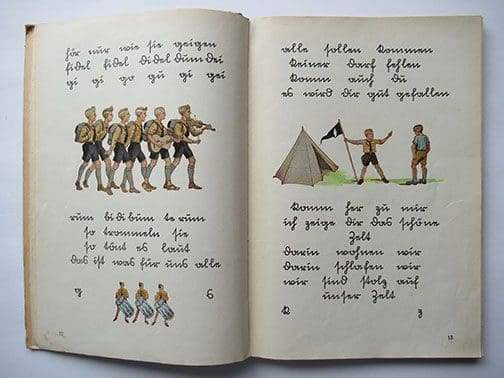 hör nur wie sie geigen
fidel fidel didel dum dei
gi gi go gu gi gei
rum bidibum te rum
so trommeln sie
so tönt es laut
das ist was für uns alle
g G
12
alle sollen kommen
keiner darf fehlen
komm auch du
es wird dir gut gefallen
komm her zu mir
ich zeige dir das schöne
Zelt
darin wohnen wir
darin schlafen wir
wir sind stolz auf
unser Zelt
K z
13